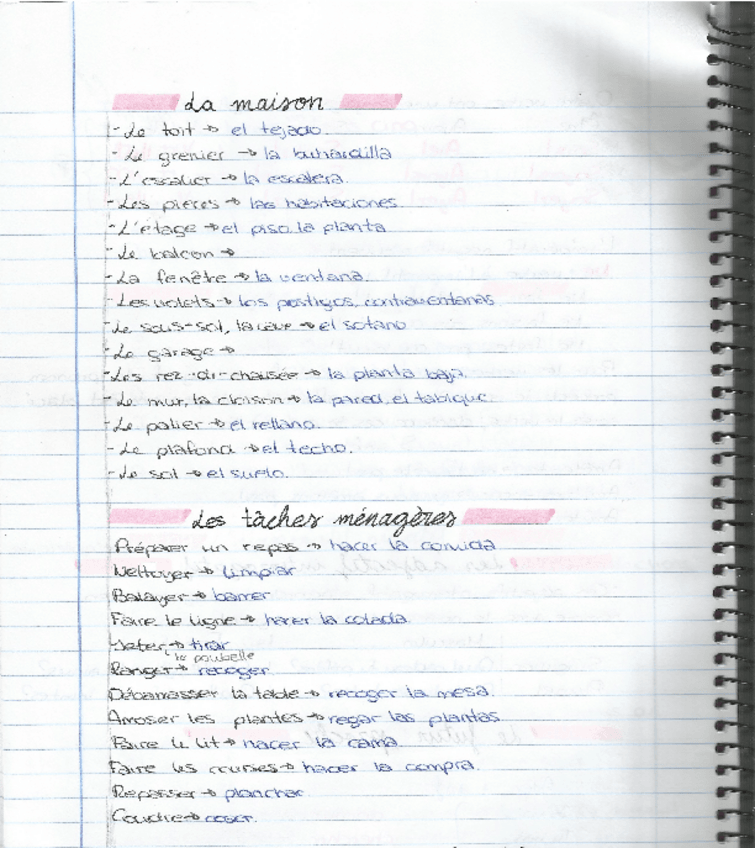 La maison
- Le toit → el tejado.
- Le grenier → la buhardilla
- L'escalier → la escalera.
- Les pièces → las habitaciones.
- L'étage → el piso, la planta
- Le balcon →
- La fenêtre → la ventana.
- Les volets → los postigos, contraventanas
- Le sous-sol, la cave → el sotano
- Le garage →
- Les rez-di-chausée → la planta baja.
- Le mur, la cloison → la pared, el tabique.
- Le palier → el rellano.
- Le plafond → el techo.
- Le sol → el suelo.
Les tâches ménagères
Préparer un repas → hacer la comida
Nettoyer → limpiar
Balayer → barrer
Faire le ligne → hacer la colada.
→ tirar
la poubelle
Ranger → recoger.
Débarrasser la table → recoger la mesa.
Arroser les plantes → regar las plantas
Faire le lit → hacer la cama.
Faire les courses → hacer la compra.
Repasser → planchar.
Coudre → coser.